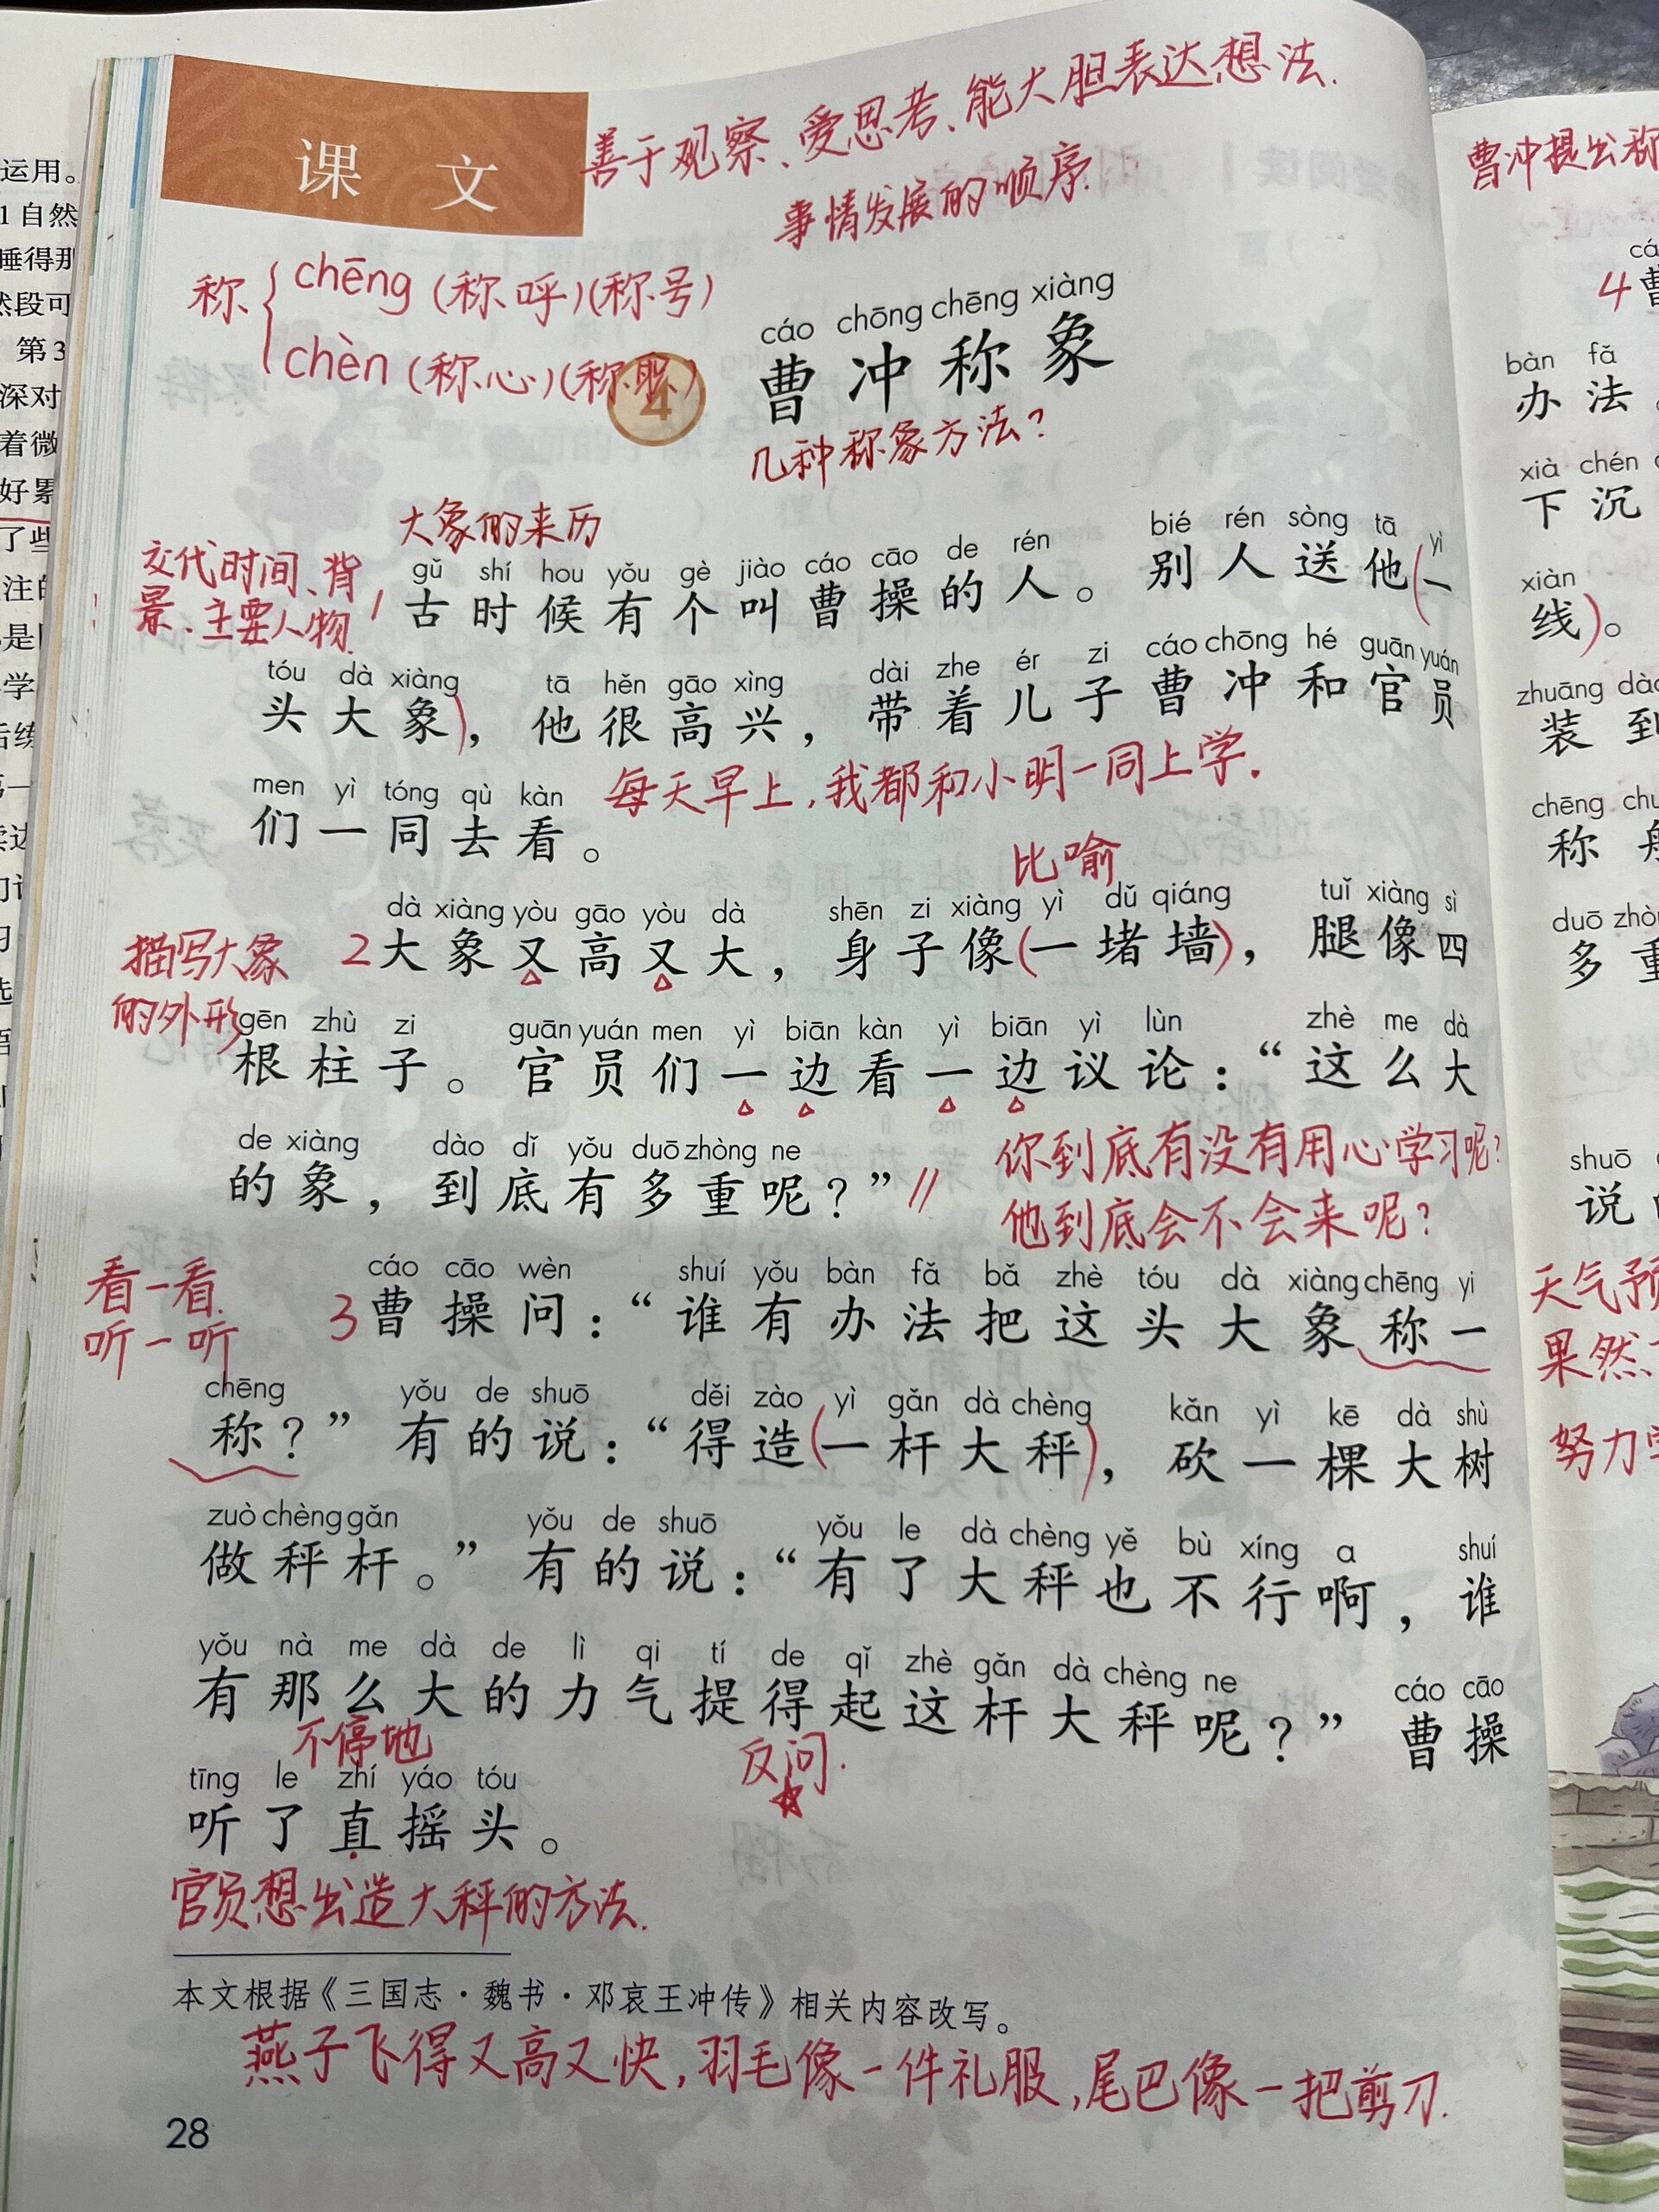 运用。
1自然
睡得那
然段可
第3
深对
着微
好累
了些
是
学
课文
善于观察、爱思考、能大胆表达想法.
事情发展的顺序.
称 chēng (称呼)(称号)
chèn (称心)(称职)
4
cáo chōng chēng xiàng
曹冲称象
几种称象方法?
大象的来历
交代时间、背
景、主要人物
gǔ shí hou yǒu gè jiào cáo cāo de rén bié rén sòng tā yì
1古时候有个叫曹操的人。别人送他(一
tóu dà xiàng tā hěn gāo xìng dài zhe ér zi cáo chōng hé guān yuán
头大象),他很高兴,带着儿子曹冲和官员
每天早上,我都和小明一同上学。
men yì tóng qù kàn
们一同去看。
比喻
描写大象
的外形
dà xiàng yòu gāo yòu dà shēn zi xiàng yì dǔ qiáng tuǐ xiàng sì
2大象又高又大,身子像(一堵墙),腿像四
gēn zhù zi guān yuán men yì biān kàn yì biān yì lùn zhè me dà
根柱子。官员们一边看一边议论:“这么大
de xiàng dào dǐ yǒu duō zhòng ne
的象,到底有多重呢?”//
你到底有没有用心学习呢?
他到底会不会来呢?
看一看
听一听
cáo cāo wèn shuí yǒu bàn fǎ bǎ zhè tóu dà xiàng chēng yi
3曹操问:“谁有办法把这头大象称一
chēng yǒu de shuō děi zào yì gǎn dà chèng kǎn yì kē dà shù
称?”有的说:“得造(一杆大秤),砍一棵大树
zuò chèng gǎn yǒu de shuō yǒu le dà chèng yě bù xíng a shuí
做秤杆。”有的说:“有了大秤也不行啊,谁
yǒu nà me dà de lì qi tí de qǐ zhè gǎn dà chèng ne cáo cāo
有那么大的力气提得起这杆大秤呢?”曹操
不停地
反问.
tīng le zhí yáo tóu
听了直摇头。
官员想出造大秤的方法.
本文根据《三国志·魏书·邓哀王冲传》相关内容改写。
燕子飞得又高又快,羽毛像一件礼服,尾巴像一把剪刀.
28
曹冲提出称
4曹
bàn fǎ
办法。
xià chén
下沉
xiàn
线)。
zhuāng dào
装到
chēng
称
duō zhòng
多重
shuō
说
天气预
果然
努力学